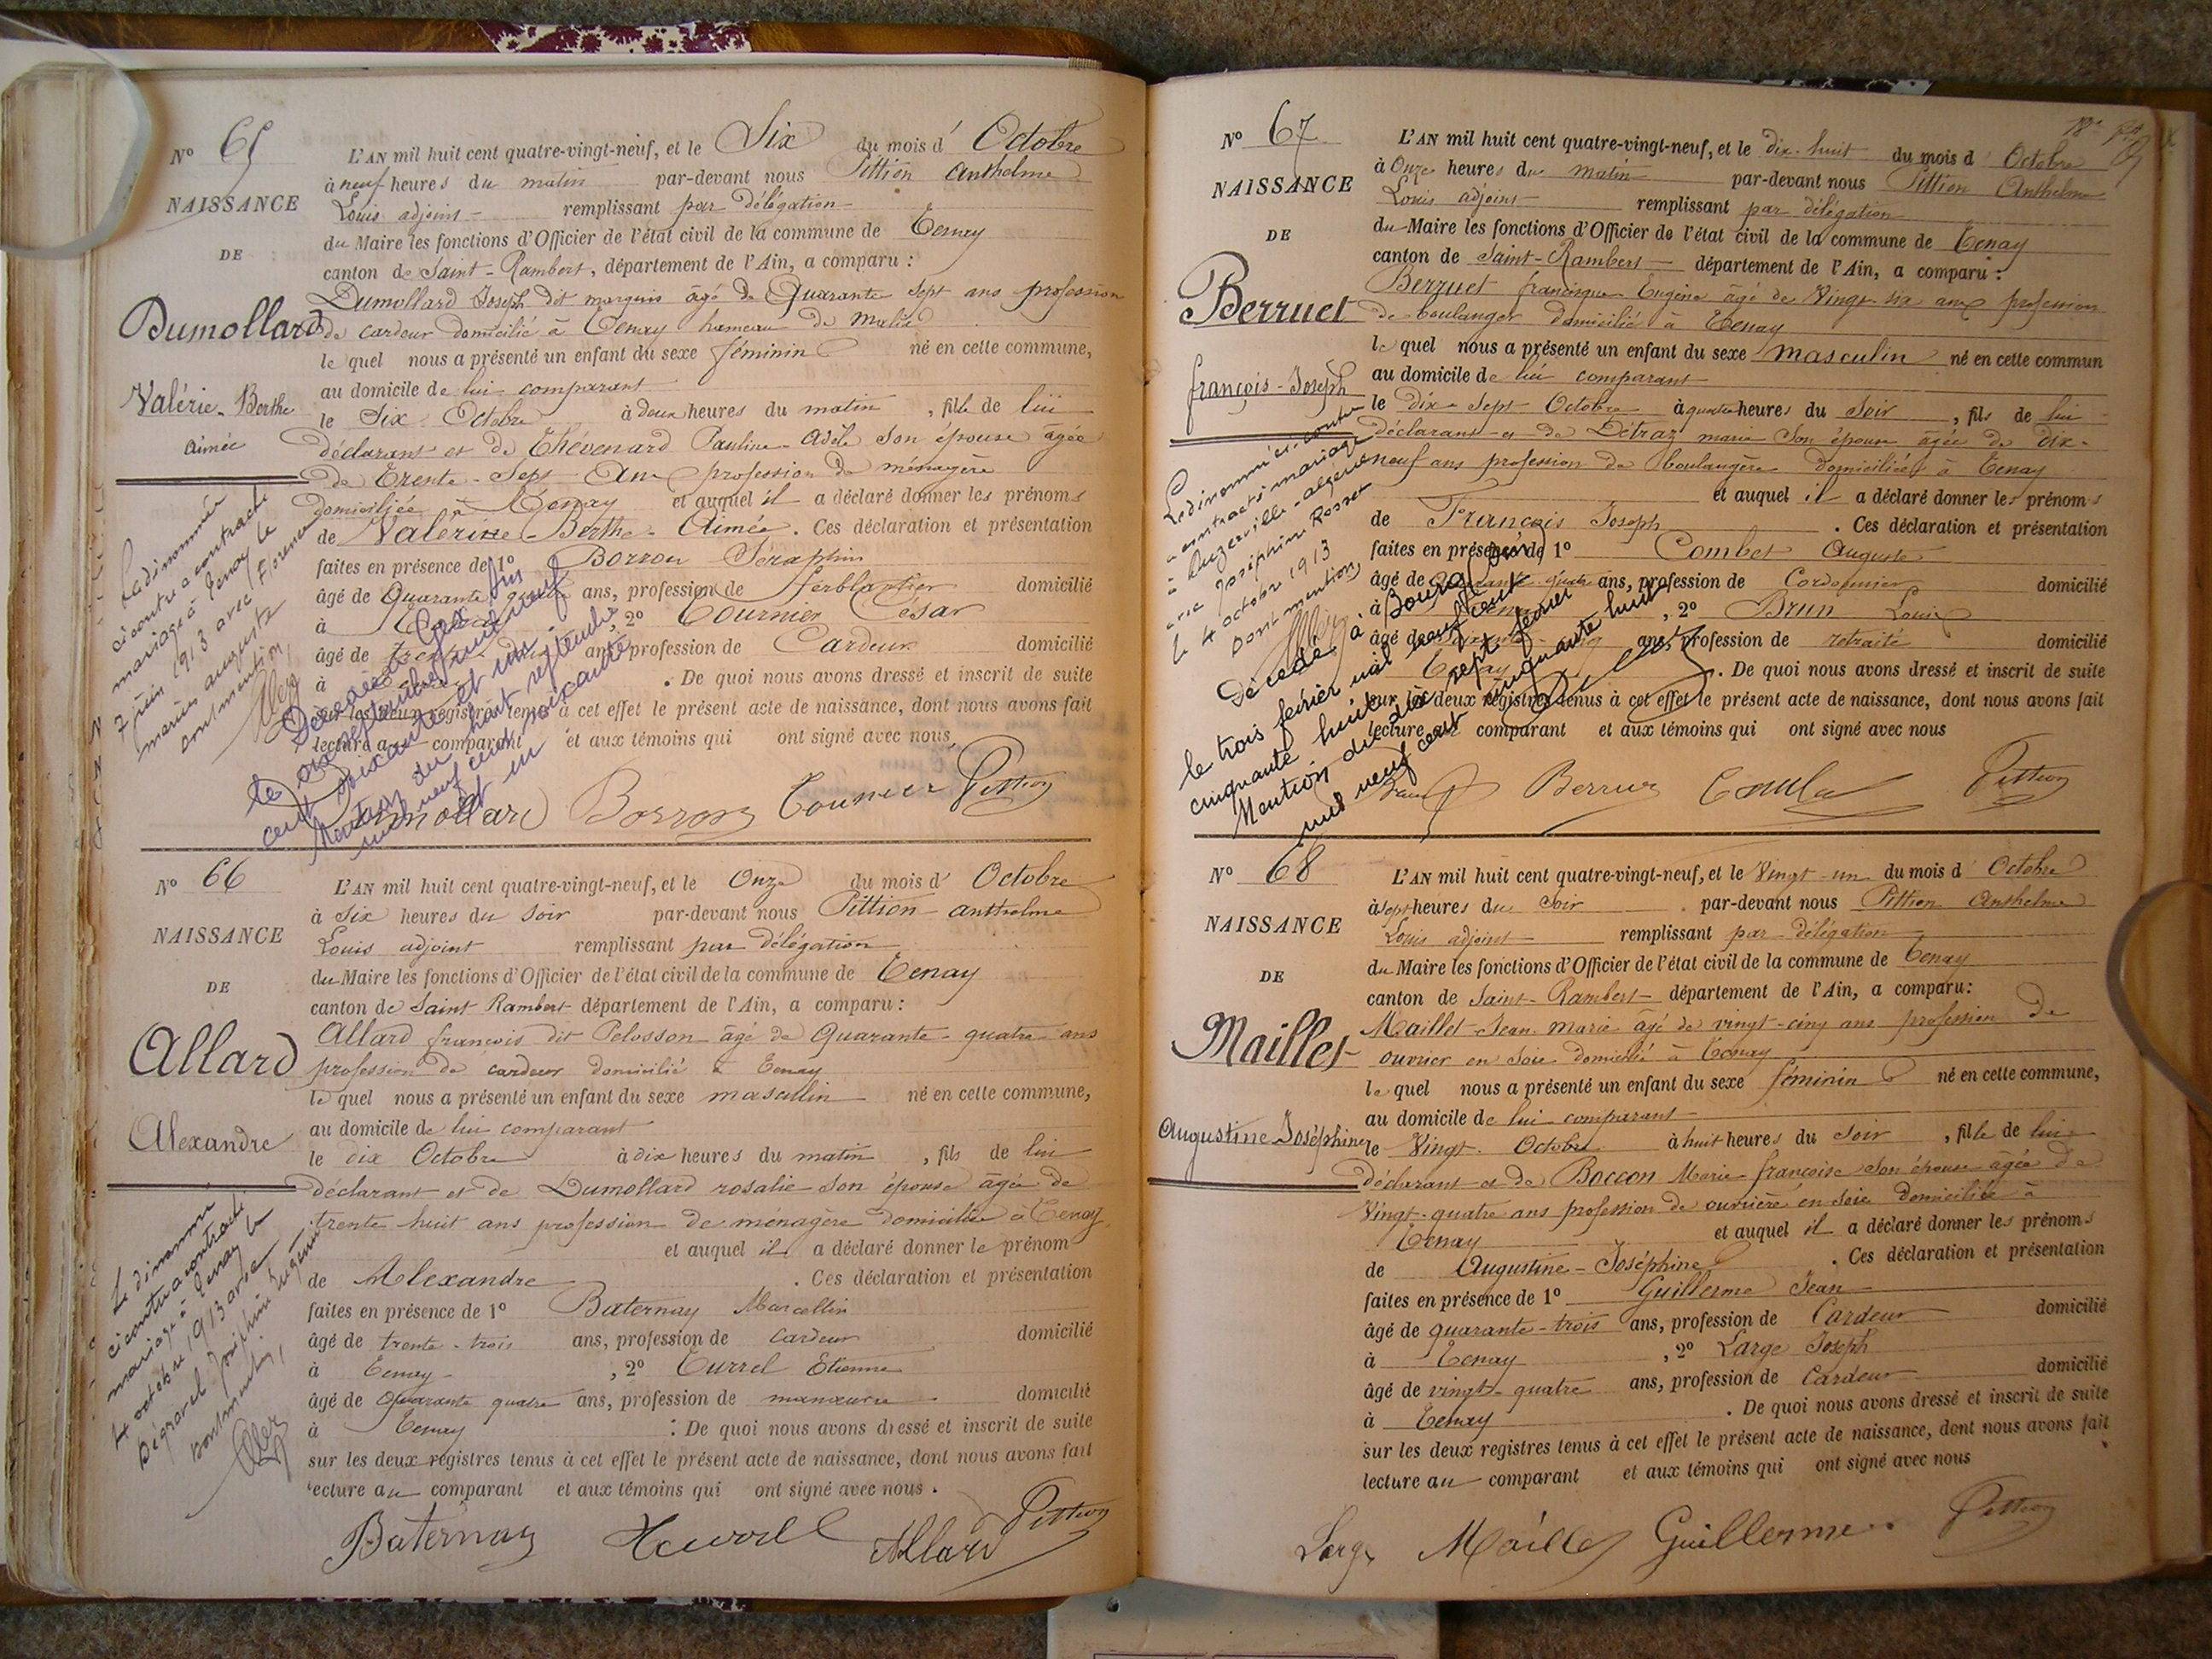 Nº 65
NAISSANCE
DE
Dumollard
Valérie-Berthe
Aimée
L'AN mil huit cent quatre-vingt-neuf, et le Six du mois d' Octobre
à neuf heures du matin par-devant nous Pittion Anthelme
Louis adjoint remplissant par délégation
du Maire les fonctions d'Officier de l'état civil de la commune de Tenay
canton de Saint-Rambert, département de l'Ain, a comparu :
Dumollard Joseph dit marquis âgé de Quarante sept ans profession
de cardeur domicilié à Tenay hameau de
le quel nous a présenté un enfant du sexe féminin né en cette commune,
au domicile de lui comparant
le Six Octobre à deux heures du matin, fille de lui
déclarant et de Thévenard Pauline-Adèle son épouse âgée
de Trente-Sept Ans profession de ménagère
domiciliée à Tenay et auquel il a déclaré donner les prénoms
de Valérine-Berthe-Aimée. Ces déclaration et présentation
faites en présence de 1º Borron Séraphin
âgé de Quarante ans, profession de ferblantier domicilié
à Tenay, 2º Tournier César
âgé de trente ans profession de Cardeur domicilié
à . De quoi nous avons dressé et inscrit de suite
sur les deux registres tenus à cet effet le présent acte de naissance, dont nous avons fait
lecture au comparant et aux témoins qui ont signé avec nous
Ladénommée
cicontre a contracté
mariage à Tenay le
7 juin 1913 avec Florence
marius auguste
dont mention,
Décédée à Gex
le dix septembre mil neuf
cent soixante et un.
Mention du huit septembre
mil neuf cent soixante
et un
Dumollard Borron Tournier Pittion
Nº 66
NAISSANCE
DE
Allard
Alexandre
L'AN mil huit cent quatre-vingt-neuf, et le Onze du mois d' Octobre
à Six heures du Soir par-devant nous Pittion anthelme
Louis adjoint remplissant par délégation
du Maire les fonctions d'Officier de l'état civil de la commune de Tenay
canton de Saint Rambert département de l'Ain, a comparu :
Allard françois dit Pelosson âgé de Quarante-quatre ans
profession de cardeur domicilié à Tenay
le quel nous a présenté un enfant du sexe masculin né en cette commune,
au domicile de lui comparant
le dix Octobre à dix heures du matin, fils de lui
déclarant et de Dumollard rosalie son épouse âgée de
trente huit ans profession de ménagère domiciliée à Tenay
et auquel il a déclaré donner le prénom
de Alexandre. Ces déclaration et présentation
faites en présence de 1º Baternay Marcellin
âgé de trente-trois ans, profession de cardeur domicilié
à Tenay, 2º Currel Etienne
âgé de Quarante quatre ans, profession de manœuvre domicilié
à Tenay : De quoi nous avons dressé et inscrit de suite
sur les deux registres tenus à cet effet le présent acte de naissance, dont nous avons fait
lecture au comparant et aux témoins qui ont signé avec nous.
Le dénommé
cicontre a contracté
mariage à Tenay le
4 octobre 1913 avec
Joséphine Eugénie
dont mention,
Baternay Allard Pittion
Nº 67
NAISSANCE
DE
Berruet
françois-Joseph
L'AN mil huit cent quatre-vingt-neuf, et le dix-huit du mois d Octobre
à Onze heures du matin par-devant nous Pittion Anthelme
Louis adjoint remplissant par délégation
du Maire les fonctions d'Officier de l'état civil de la commune de Tenay
canton de Saint-Rambert département de l'Ain, a comparu :
Berruet francisque Eugène âgé de Vingt-six ans profession
de boulanger domicilié à Tenay
le quel nous a présenté un enfant du sexe masculin né en cette commun
au domicile de lui comparant
le dix-Sept Octobre à quatre heures du Soir, fils de lui
déclarant et de Détraz marie Son épouse âgée de dix-
neuf ans profession de boulangère domiciliée à Tenay
et auquel il a déclaré donner les prénoms
de François Joseph. Ces déclaration et présentation
faites en présence de 1º Combet Auguste
âgé de quatre ans, profession de Cordonnier domicilié
à Tenay, 2º Brun Louis
âgé de ans, profession de retraité domicilié
à Tenay. De quoi nous avons dressé et inscrit de suite
sur les deux registres tenus à cet effet le présent acte de naissance, dont nous avons fait
lecture au comparant et aux témoins qui ont signé avec nous
Le dénommé ci-contre
a contracté mariage
à Duzerville-algerie
avec Joséphine Rosset
le 4 octobre 1913
Dont mention,
Décédé à Bourg (Ain)
le trois février mil neuf cent
cinquante huit.
Mention du dix sept février
mil neuf cent cinquante huit
Brun Berruet Pittion
Nº 68
NAISSANCE
DE
Maillet
Augustine Joséphine
L'AN mil huit cent quatre-vingt-neuf, et le Vingt-un du mois d Octobre
à sept heures du Soir par-devant nous Pittion Anthelme
Louis adjoint remplissant par délégation
du Maire les fonctions d'Officier de l'état civil de la commune de Tenay
canton de Saint-Rambert département de l'Ain, a comparu :
Maillet Jean marie âgé de vingt-cinq ans profession de
ouvrier en Soie domicilié à Tenay
le quel nous a présenté un enfant du sexe féminin né en cette commune,
au domicile de lui comparant
le Vingt Octobre à huit heures du Soir, fille de lui
déclarant et de Boccon Marie françoise Son épouse âgée de
Vingt-quatre ans profession de ouvrière en soie domiciliée à
Tenay et auquel il a déclaré donner les prénoms
de Augustine-Joséphine. Ces déclaration et présentation
faites en présence de 1º Guillerme Jean
âgé de quarante-trois ans, profession de Cardeur domicilié
à Tenay, 2º Large Joseph
âgé de vingt-quatre ans, profession de Cardeur domicilié
à Tenay. De quoi nous avons dressé et inscrit de suite
sur les deux registres tenus à cet effet le présent acte de naissance, dont nous avons fait
lecture au comparant et aux témoins qui ont signé avec nous
Large Maillet Guillerme Pittion